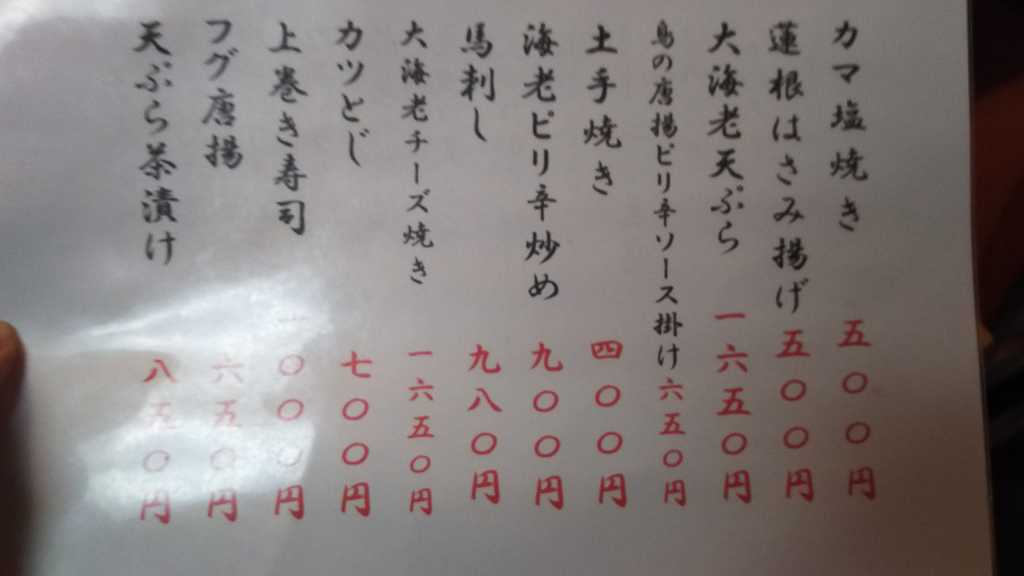 カマ塩焼き 五〇〇円
蓮根はさみ揚げ 五〇〇円
大海老天ぷら 一六五〇円
鳥の唐揚ピリ辛ソース掛け 六五〇円
土手焼き 四〇〇円
海老ピリ辛炒め 九〇〇円
馬刺し 九八〇円
大海老チーズ焼き 一六五〇円
カツとじ 七〇〇円
上巻き寿司 一〇〇〇円
フグ唐揚 六五〇円
天ぷら茶漬け 八五〇円